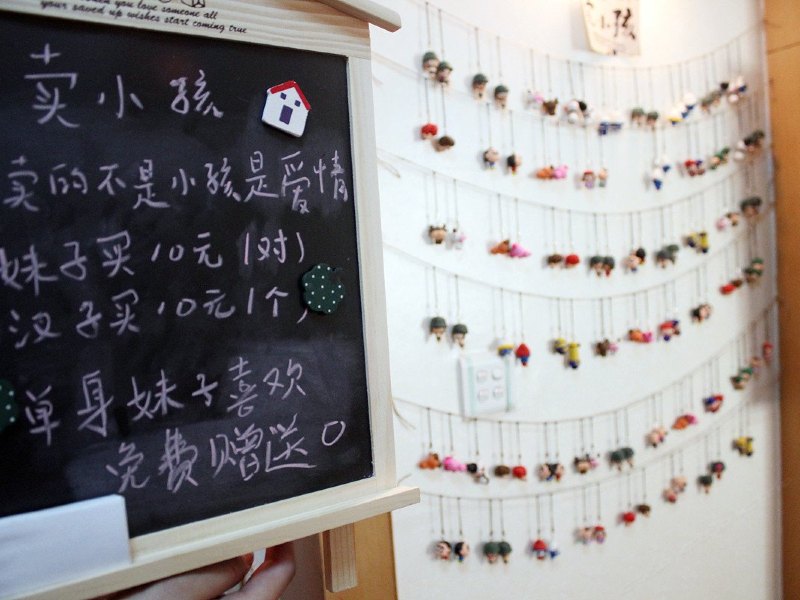 when you love someone all
your saved up wishes start coming true
卖小孩
卖的不是小孩是爱情
妹子买10元1对
汉子买10元1个
单身妹子喜欢
免费赠送。
小孩